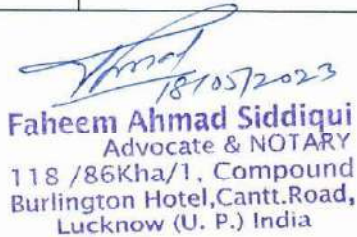 18/05/2023
Faheem Ahmad Siddiqui
Advocate & NOTARY
118 /86Kha/1, Compound
Burlington Hotel,Cantt.Road,
Lucknow (U. P.) India